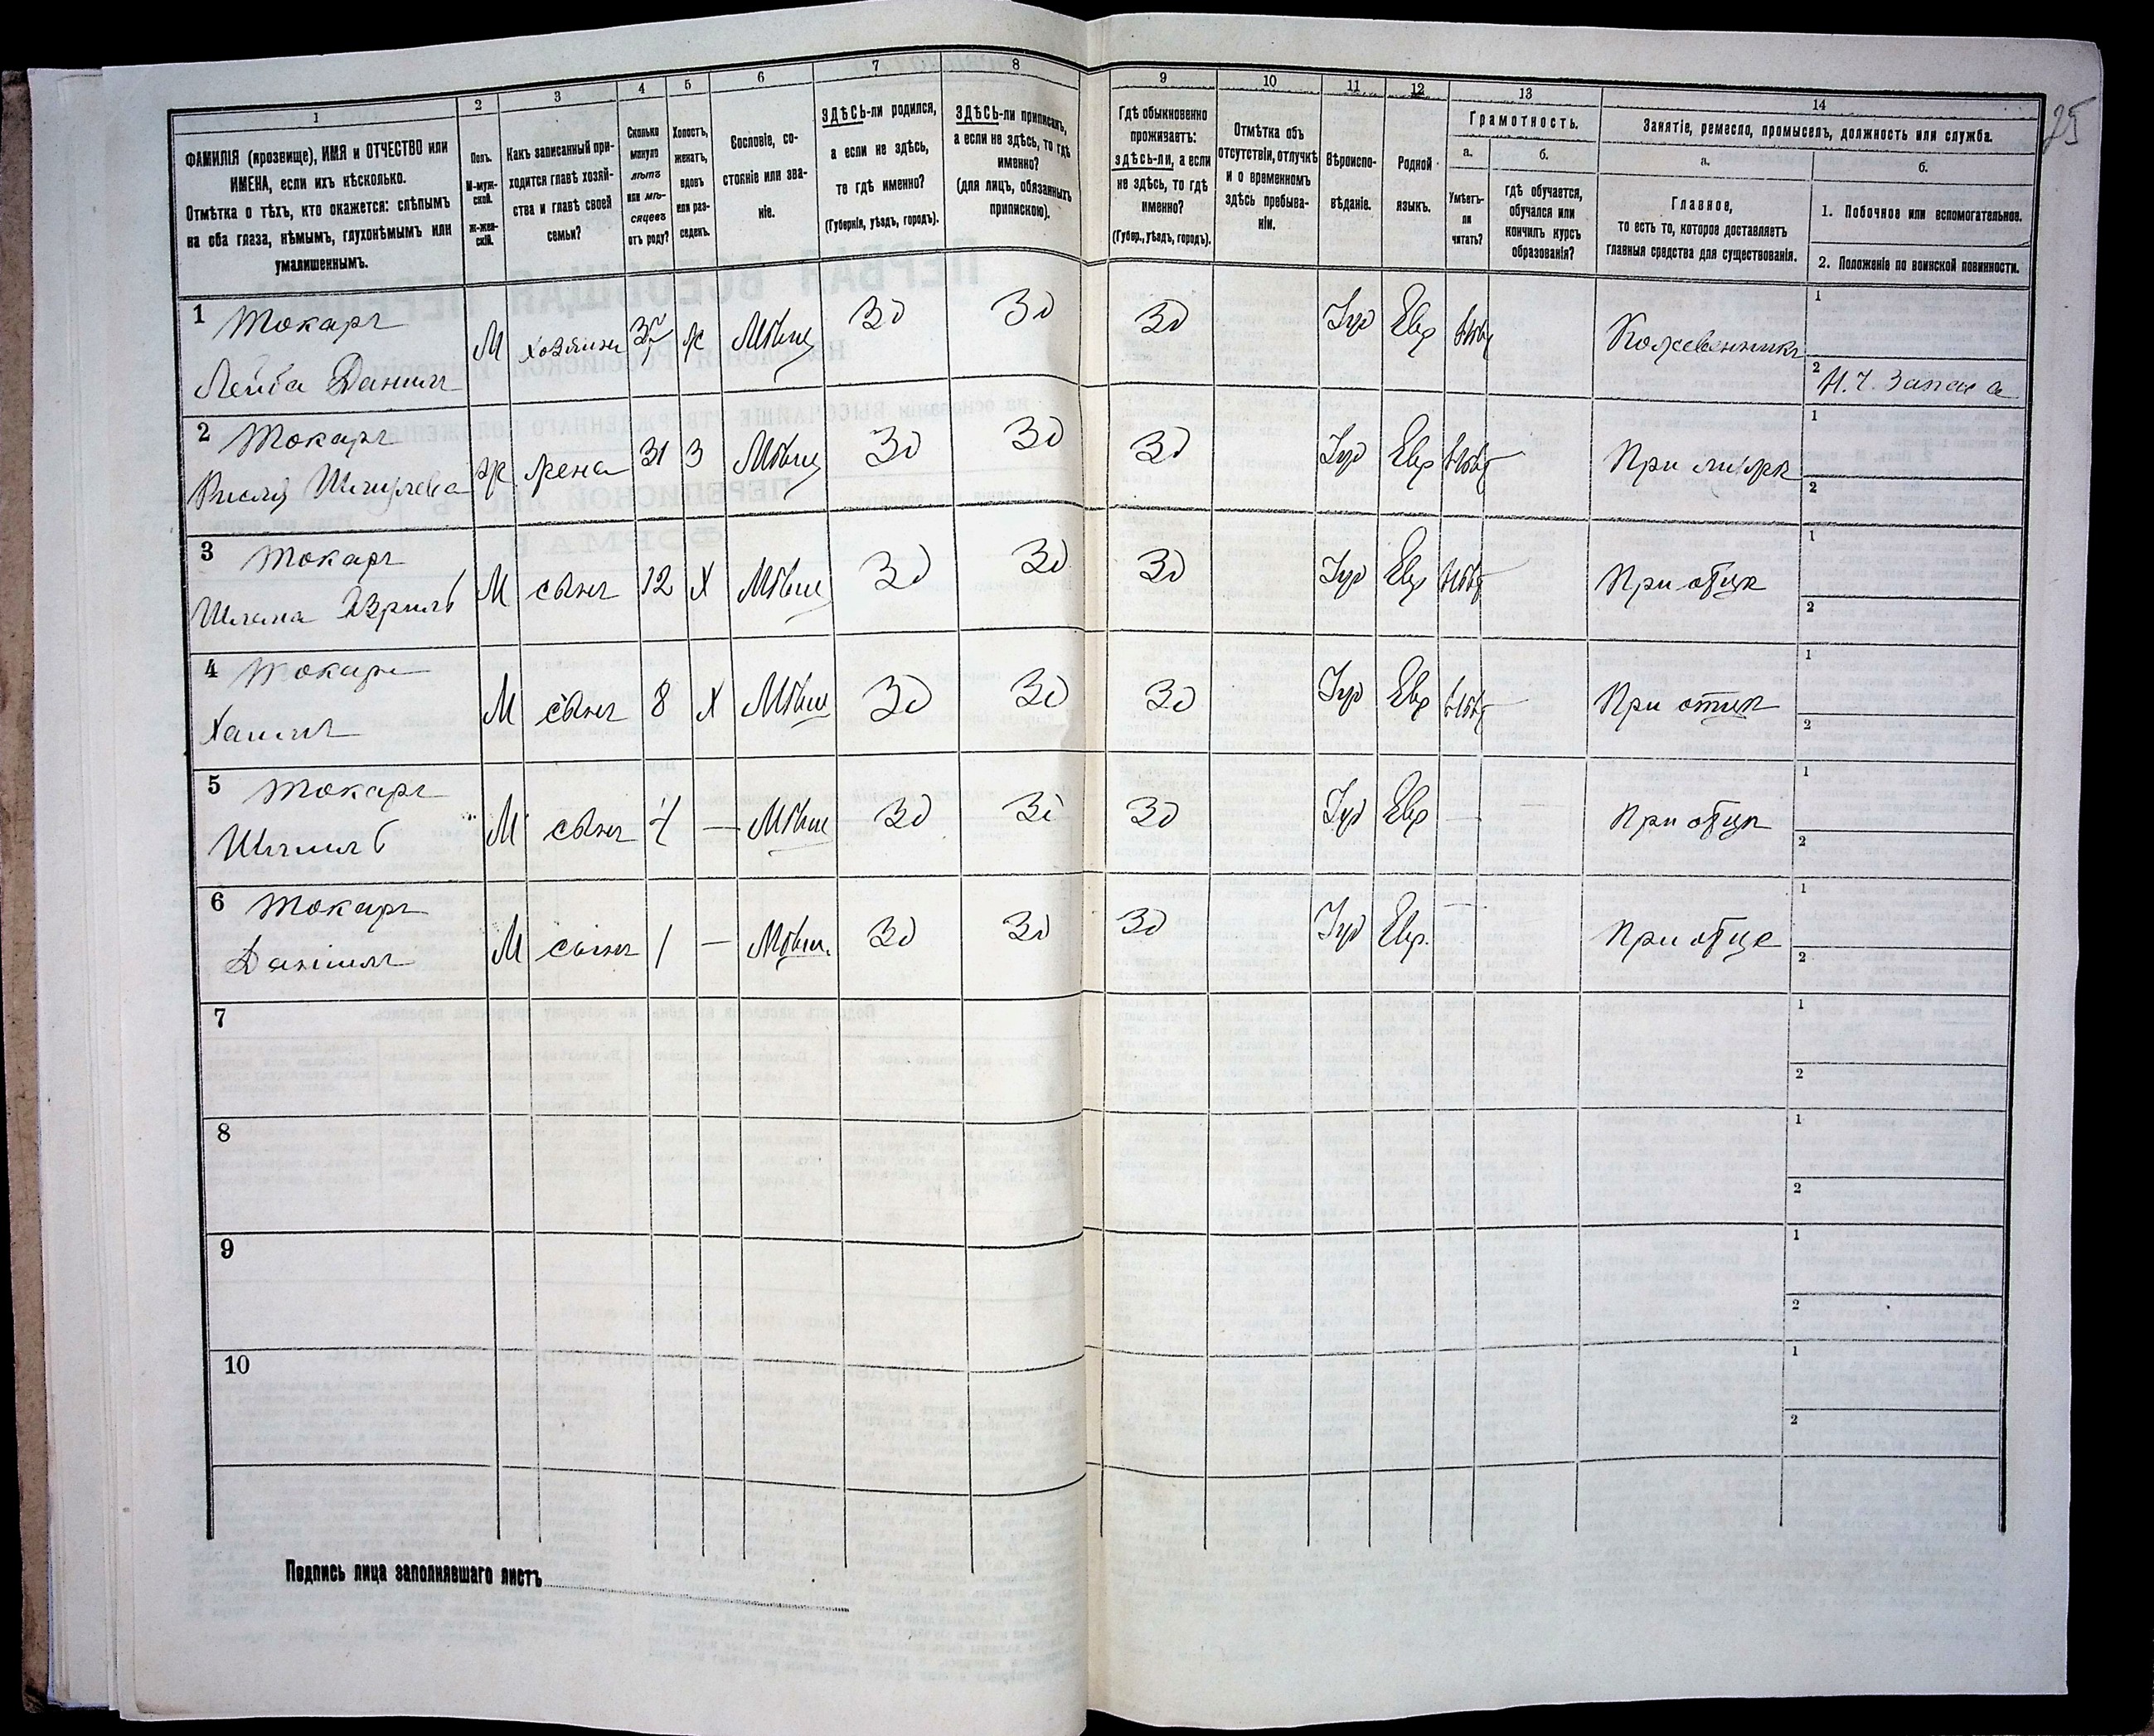 25
1
2
3
4
5
6
7
8
9
10
11
12
13
14
ФАМИЛІЯ (прозвище), ИМЯ и ОТЧЕСТВО или
ИМЕНА, если ихъ нѣсколько.
Отмѣтка о тѣхъ, кто окажется: слѣпымъ
на оба глаза, нѣмымъ, глухонѣмымъ или
умалишеннымъ.
Полъ.
М-муж-
ской.
Ж-жен-
скій.
Какъ записанный при-
ходится главѣ хозяй-
ства и главѣ своей
семьи?
Сколько
минуло
лѣтъ
или мѣ-
сяцевъ
отъ роду?
Холостъ,
женатъ,
вдовъ
или раз-
веденъ.
Сословіе, со-
стояніе или зва-
ніе.
ЗДѢСЬ-ли родился,
а если не здѣсь,
то гдѣ именно?
(Губернія, уѣздъ, городъ).
ЗДѢСЬ-ли приписанъ,
а если не здѣсь, то гдѣ
именно?
(для лицъ, обязанныхъ
припискою).
Гдѣ обыкновенно
проживаетъ:
здѣсь-ли, а если
не здѣсь, то гдѣ
именно?
(Губер., уѣздъ, городъ).
Отмѣтка объ
отсутствіи, отлучкѣ
и о временномъ
здѣсь пребыва-
ніи.
Вѣроиспо-
вѣданіе.
Родной
языкъ.
Грамотность.
а.
Умѣетъ-
ли
читать?
б.
гдѣ обучается,
обучался или
кончилъ курсъ
образованія?
Занятіе, ремесло, промыселъ, должность или служба.
а.
Главное,
то есть то, которое доставляетъ
главныя средства для существованія.
б.
1. Побочное или вспомогательное.
2. Положеніе по воинской повинности.
1 Токарь
Лейба Данил М хозяинъ ж Мѣщ Зд Зд Зд Іуд Евр Кожевникъ 1
2 Н.Ч. Запаса
2 Токарь
ж жена 31 З Мѣщ Зд Зд Зд Іуд Евр При мужѣ 1
2
3 Токарь
М сынъ 12 Х Мѣщ Зд Зд Зд Іуд Евр При отцѣ 1
2
4 Токарь
М сынъ 8 Х Мѣщ Зд Зд Зд Іуд Евр При отцѣ 1
2
5 Токарь
М сынъ 4 — Мѣщ Зд Зд Зд Іуд Евр — При отцѣ 1
2
6 Токарь
Даніилъ М сынъ 1 — Мѣщ. Зд Зд Зд Іуд Евр. — При отце 1
2
7 1
2
8 1
2
9 1
2
10 1
2
Подпись лица заполнявшаго листъ